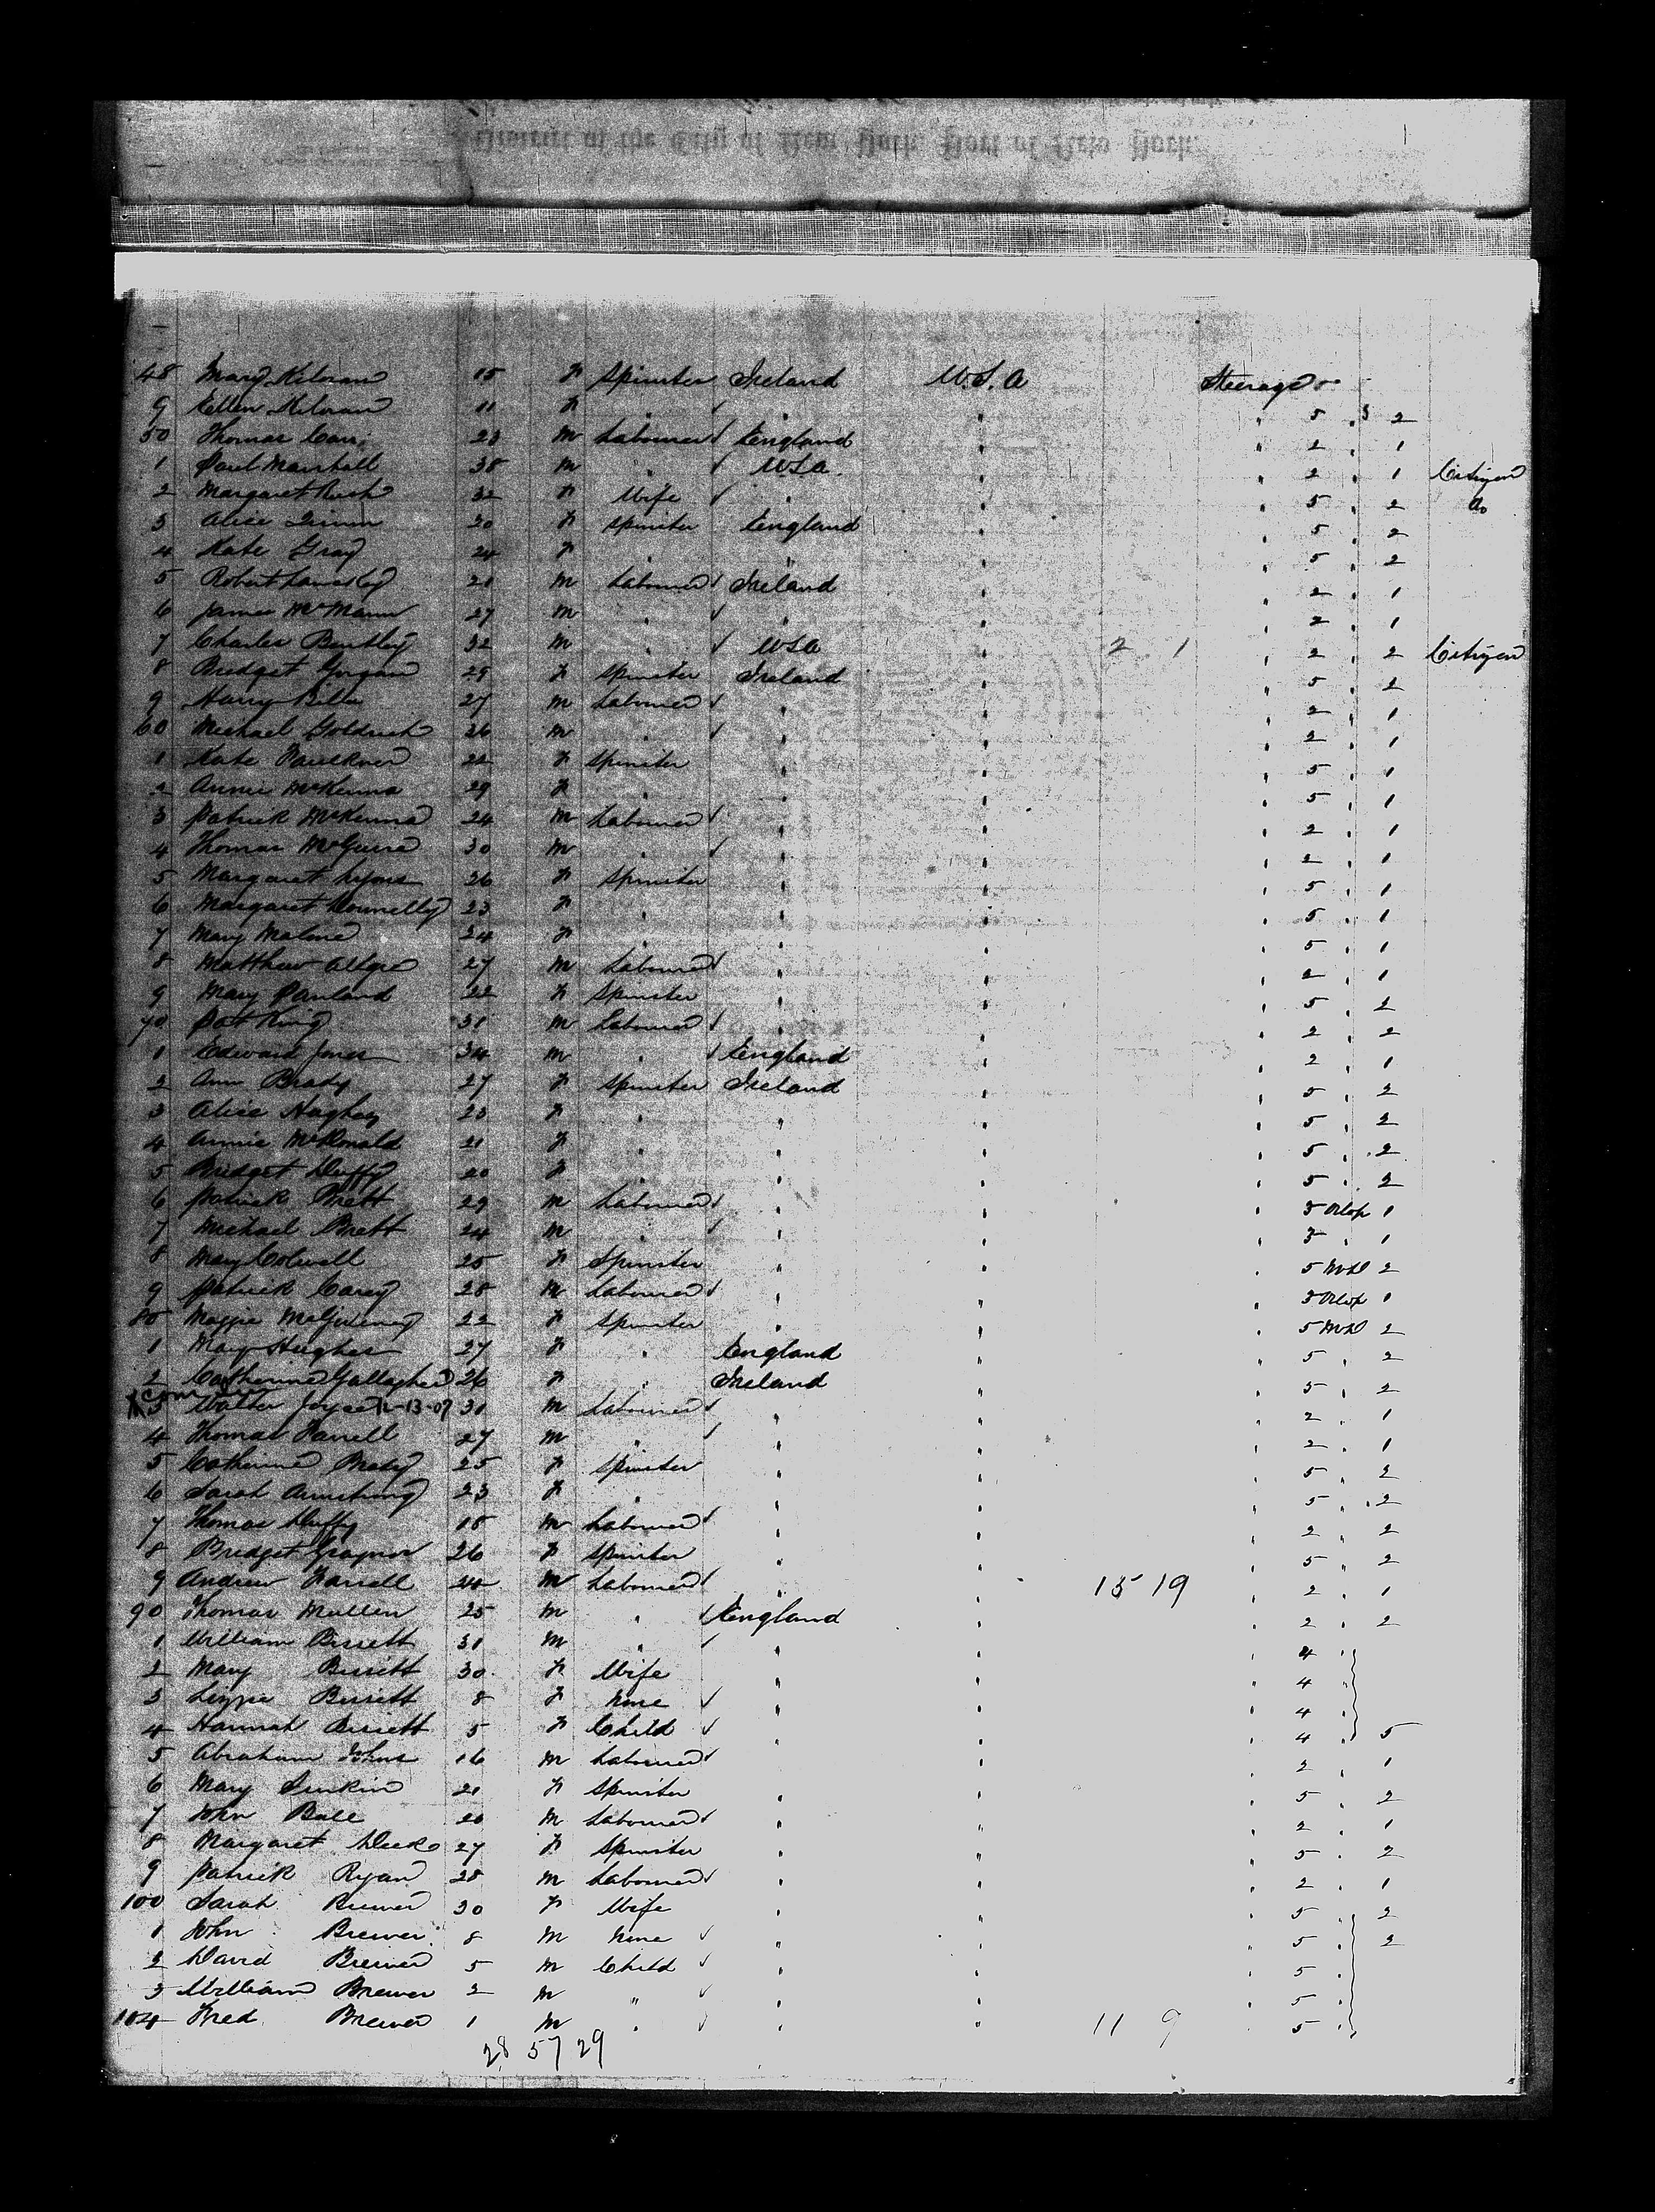 District of the City of New York, Port of New York.
48 Mary Kiloran 15 F Spinster Ireland U.S.A Steerage
9 Ellen Kiloran 11 F " " " " 5 " 2
50 Thomas Carr 23 M Labourer England " " 2 " 1
1 Paul Marshall 38 M " U.S.A. " " 2 " 1 Citizen
2 Margaret Rush 32 F Wife " " " 5 " 2 Do
3 Alice Quinn 20 F Spinster England " " 5 " 2
4 Kate Gray 24 F " " " " 5 " 2
5 Robert 21 M Labourer Ireland " " 2 " 1
6 James McMann 27 M " " " " 2 " 1
7 Charles Bentley 32 M " USA " 2 1 " 2 " 2 Citizen
8 Bridget Grogan 25 F Spinster Ireland " " 5 " 2
9 Harry 27 M Labourer " " " 2 " 1
60 Michael Goldrick 26 M " " " " 2 " 1
1 Kate Faulkner 22 F Spinster " " " 5 " 1
2 Annie McKenna 29 F " " " " 5 " 1
3 Patrick McKenna 24 M Labourer " " " 2 " 1
4 Thomas McGuire 30 M " " " " 2 " 1
5 Margaret Lyons 26 F Spinster " " " 5 " 1
6 Margaret Connelly 23 F " " " " 5 " 1
7 Mary Malone 24 F " " " " 5 " 1
8 Matthew 27 M Labourer " " " 2 " 1
9 Mary Parland 22 F Spinster " " " 5 " 2
70 Pat King 31 M Labourer " " " 2 " 2
1 Edward Jones 34 M " England " " 2 " 1
2 Ann Brady 27 F Spinster Ireland " " 5 " 2
3 Alice Haghey 23 F " " " " 5 " 2
4 Annie McDonald 21 F " " " " 5 " 2
5 Bridget Duffy 20 F " " " " 5 " 2
6 Patrick Brett 29 M Labourer " " " 3 Orlop 1
7 Michael Brett 24 M " " " " 3 " 1
8 Mary Colwell 25 F Spinster " " " 5 Md 2
9 Patrick Carey 28 M Labourer " " " 3 Orlop 1
80 Maggie 22 F Spinster " " " 5 Md 2
1 Mary Hughes 27 F " England " " 5 " 2
2 Catherine Gallagher 26 F " Ireland " " 5 " 2
3 Walter Joyce 12-13-07 31 M Labourer " " " 2 " 1
4 Thomas Farrell 27 M " " " " 2 " 1
5 Catherine Brady 25 F Spinster " " " 5 " 2
6 Sarah Armstrong 23 F " " " " 5 " 2
7 Thomas Duffy 18 M Labourer " " " 2 " 2
8 Bridget Graynor 26 F Spinster " " " 5 " 2
9 Andrew Farrell 24 M Labourer " " 15 19 " 2 " 1
90 Thomas Mullen 25 M " England " " 2 " 2
1 William Bissett 31 M " " " " 4 "
2 Mary Bissett 30 F Wife " " " 4 "
3 Lizzie Bissett 8 F None " " " 4 "
4 Hannah Bissett 5 F Child " " " 4 " 5
5 Abraham Johns 16 M Labourer " " " 2 " 1
6 Mary Jenkin 21 F Spinster " " " 5 " 2
7 John Ball 20 M Labourer " " " 2 " 1
8 Margaret Deeks 27 F Spinster " " " 5 " 2
9 Patrick Ryan 28 M Labourer " " " 2 " 1
100 Sarah Brewer 30 F Wife " " " 5 " 2
1 John Brewer 8 M None " " " 5 " 2
2 David Brewer 5 M Child " " " 5 "
3 William Brewer 2 M " " " " 5 "
104 Fred Brewer 1 M " " " 11 9 " 5 "
28 57 29